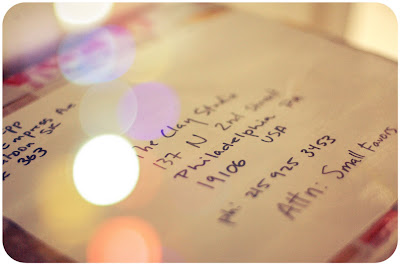 PP
Empress Ave
toon SK
363
The Clay Studio
137 N 2nd Street
Philadelphia PA
19106 USA
ph: 215 925 3453
Attn: Small Favors